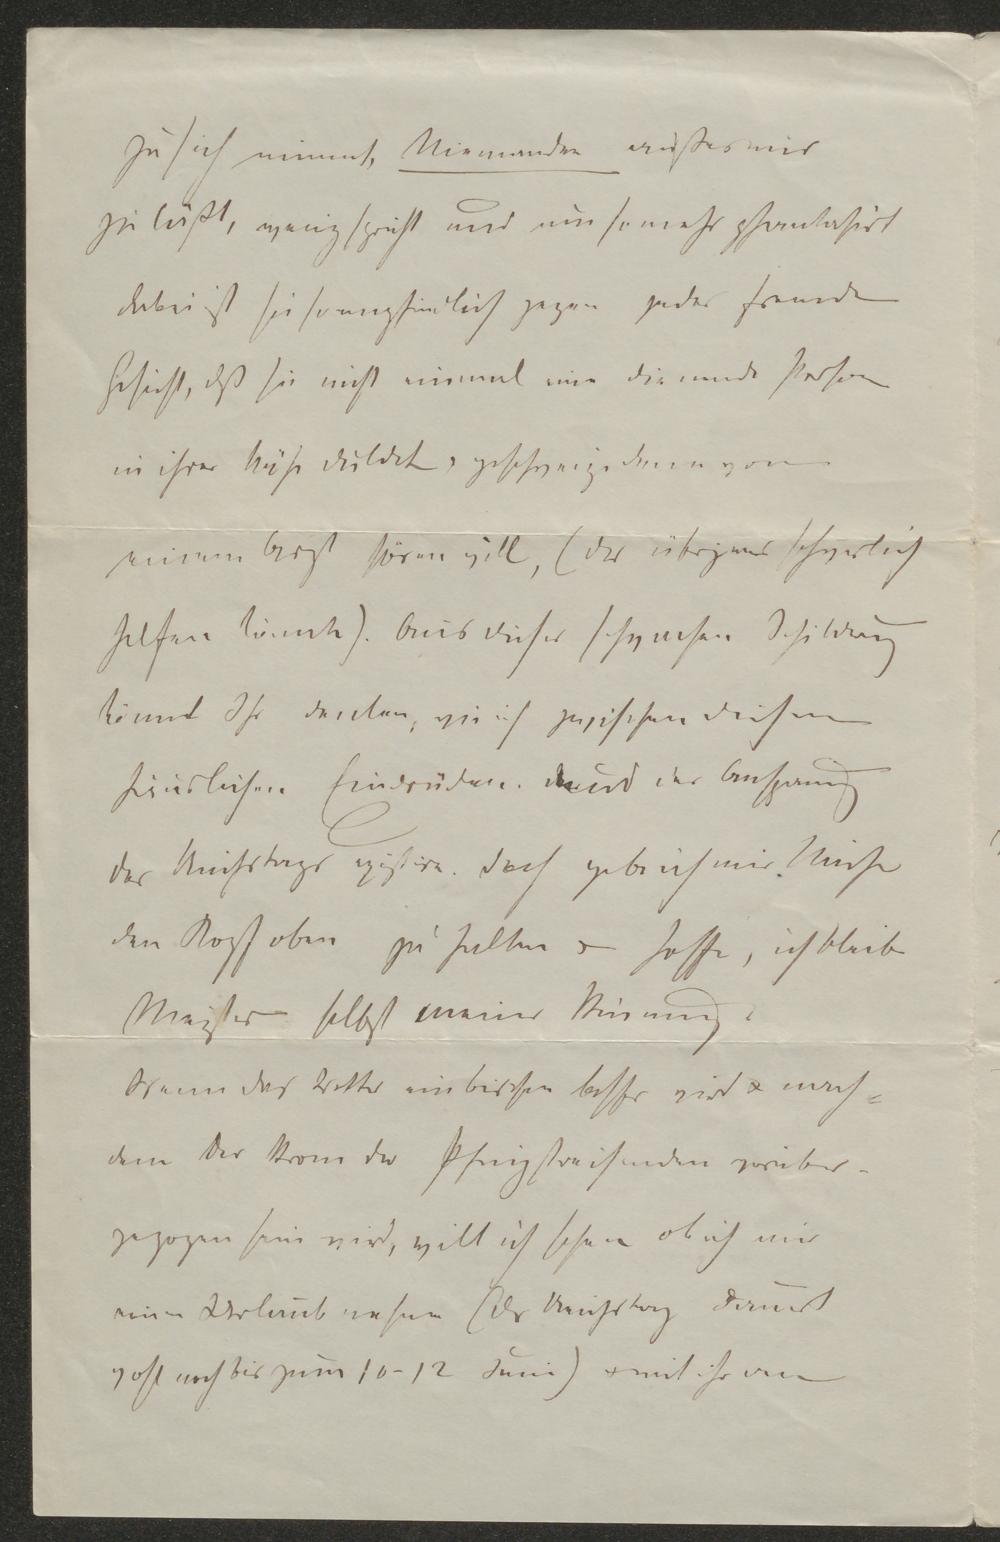 zu sich nimmt, Niemanden außer mir
zu läßt, wenig spricht und um so mehr phantasirt
dabei ist sie so empfindlich gegen jedes fremde
Gesicht, dß sie nicht einmal eine dienende Person
in ihrer Nähe duldet, geschweige denn von
einem Arzt hören will, (der übrigens schwerlich
helfen könnte). Aus dieser schwachen Schilderung
könnt Ihr denken, wie ich zwischen diesen
häuslichen Eindrücken und der Anspannung
des Reichstags existire. Doch gebe ich mir Mühe
den Kopf oben zu halten & hoffe, ich bleibe
Meister selbst meiner Stimmung.
Wenn das Wetter ein bischen besser wird & nach-
dem der Strom der Pfingstreisenden vorüber-
gezogen sein wird, will ich sehen ob ich mir
einen Urlaub nehme (der Reichstag dauert
wohl noch bis zum 10-12 Juni) & mit ihr an